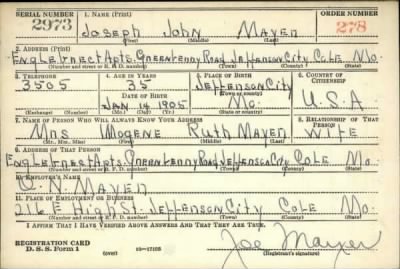 SERIAL NUMBER 1. NAME (Print) ORDER NUMBER
2973 JOSEPH JOHN MAYER 278
(First) (Middle) (Last)
2. ADDRESS (Print)
Apts. Greenberry Road, Jefferson City Cole Mo.
(Number and street or R. F. D. number) (Town) (County) (State)
3. TELEPHONE 4. AGE IN YEARS 5. PLACE OF BIRTH 6. COUNTRY OF CITIZENSHIP
3505 35 Jefferson City
DATE OF BIRTH (Town or county)
JAN 14 1905 Mo. U.S.A
(Exchange) (Number) (Mo.) (Day) (Yr.) (State or country)
7. NAME OF PERSON WHO WILL ALWAYS KNOW YOUR ADDRESS 8. RELATIONSHIP OF THAT PERSON
Mrs Imogene Ruth Mayer Wife
(Mr., Mrs., Miss) (First) (Middle) (Last)
9. ADDRESS OF THAT PERSON
Apts. Greenberry Road Jefferson City Cole Mo.
(Number and street or R. F. D. number) (Town) (County) (State)
10. EMPLOYER'S NAME
Mayer
11. PLACE OF EMPLOYMENT OR BUSINESS
216 E High St. Jefferson City Cole Mo.
(Number and street or R. F. D. number) (Town) (County) (State)
I AFFIRM THAT I HAVE VERIFIED ABOVE ANSWERS AND THAT THEY ARE TRUE.
REGISTRATION CARD Joe Mayer
D. S. S. Form 1 (over) 16—17105 (Registrant's signature)